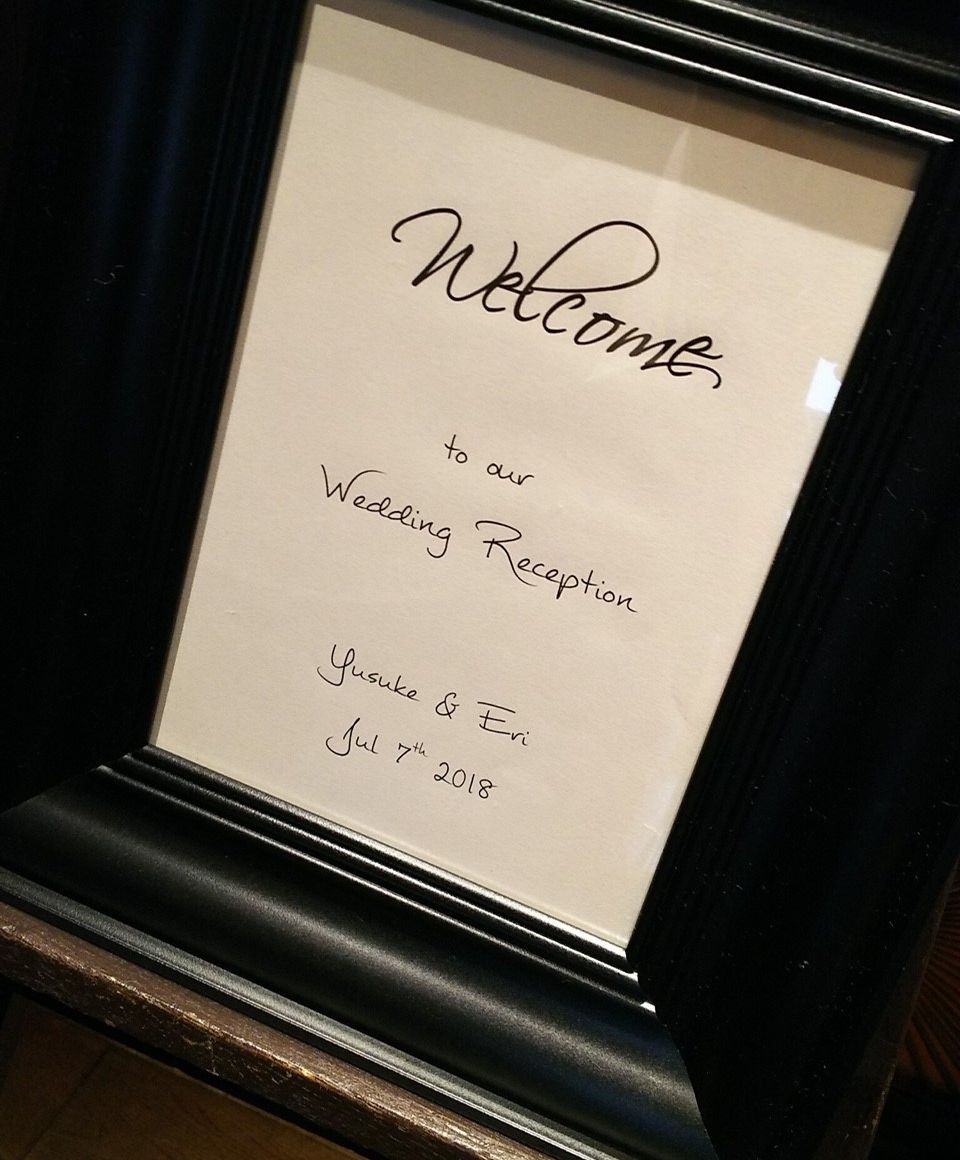 Welcome
to our
Wedding Reception
Yusuke & Eri
Jul 7th 2018